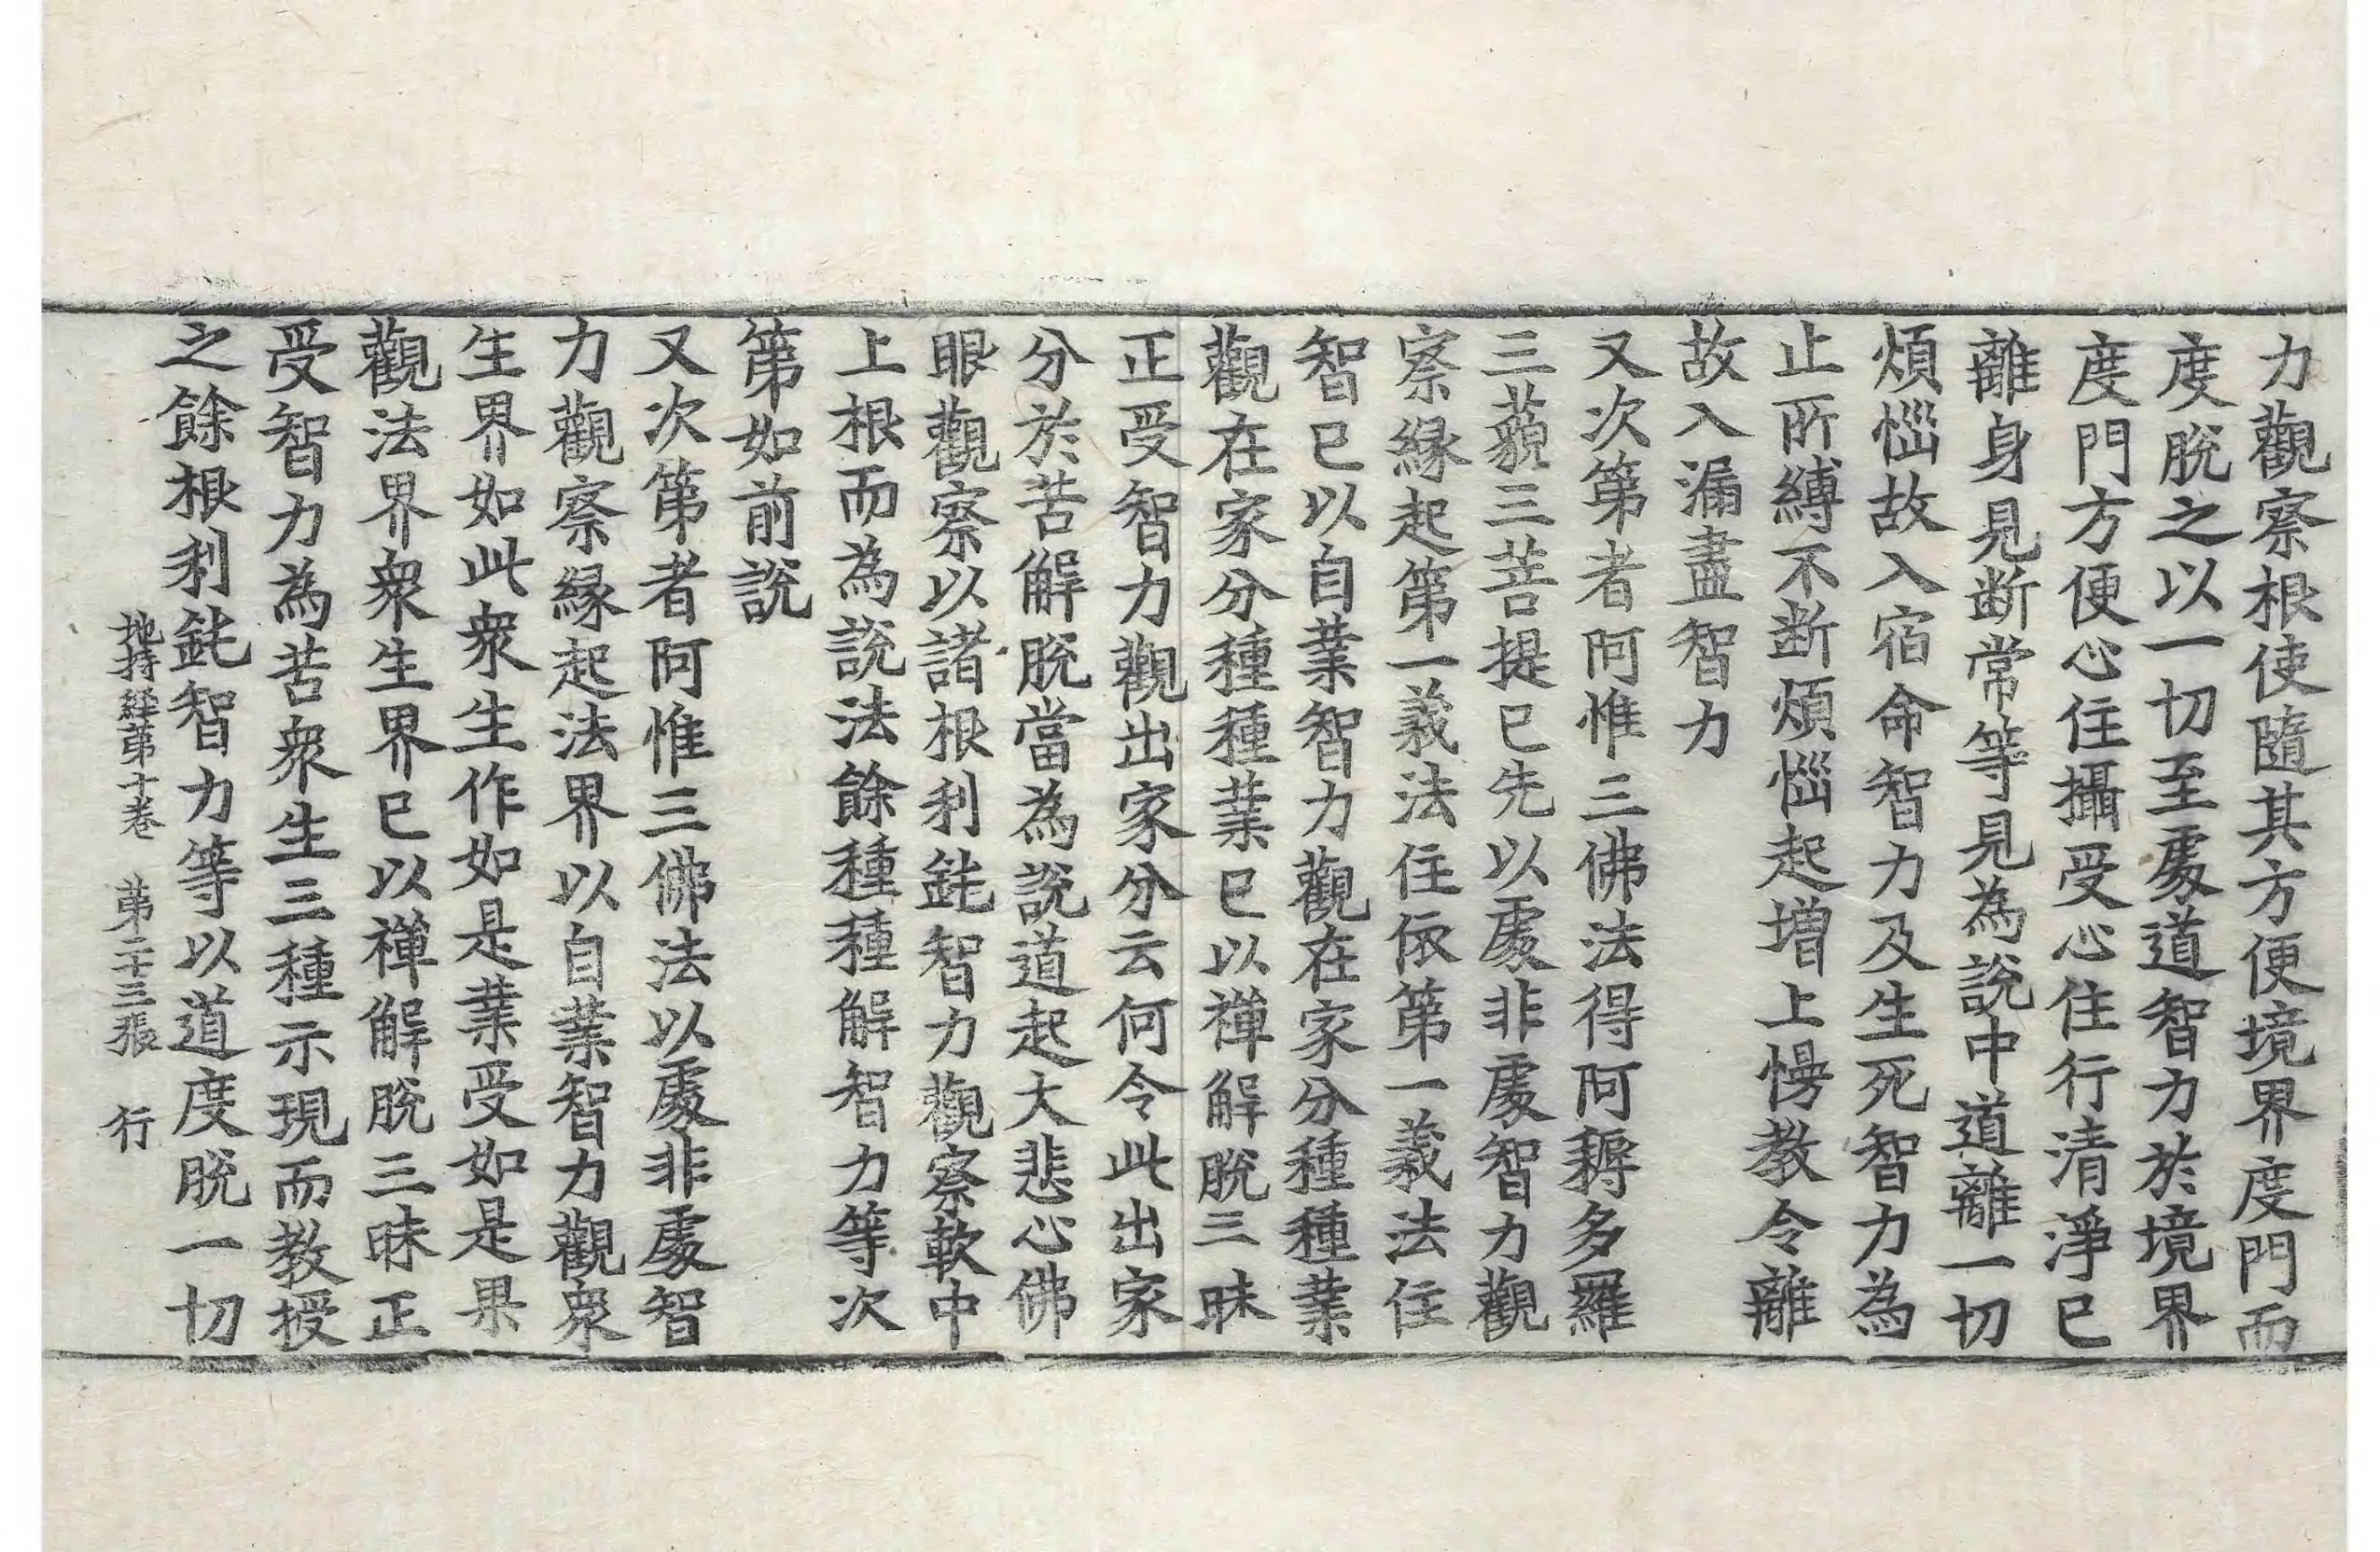 力觀察根使隨其方便境界度門而
度脫之以一切至處道智力於境界
度門方便心住攝受心住行清淨已
離身見断常等見為說中道離一切
煩惱故入宿命智力及生死智力為
止所縛不断煩惱起增上慢教令離
故入漏盡智力
又次第者阿惟三佛法得阿耨多羅
三藐三菩提已先以處非處智力觀
察緣起第一義法住依第一義法住
智已以自業智力觀在家分種種業
觀在家分種種業已以禪解脫三昧
正受智力觀出家分云何令此出家
分於苦解脫當為說道起大悲心佛
眼觀察以諸根利鈍智力觀察軟中
上根而為說法餘種種解智力等次
第如前說
又次第者阿惟三佛法以處非處智
力觀察緣起法界以自業智力觀衆
生界如此衆生作如是業受如是果
觀法界衆生界已以禪解脫三昧正
受智力為苦衆生三種示現而教授
之餘根利鈍智力等以道度脫一切
地持經第十卷 第二十三張 行